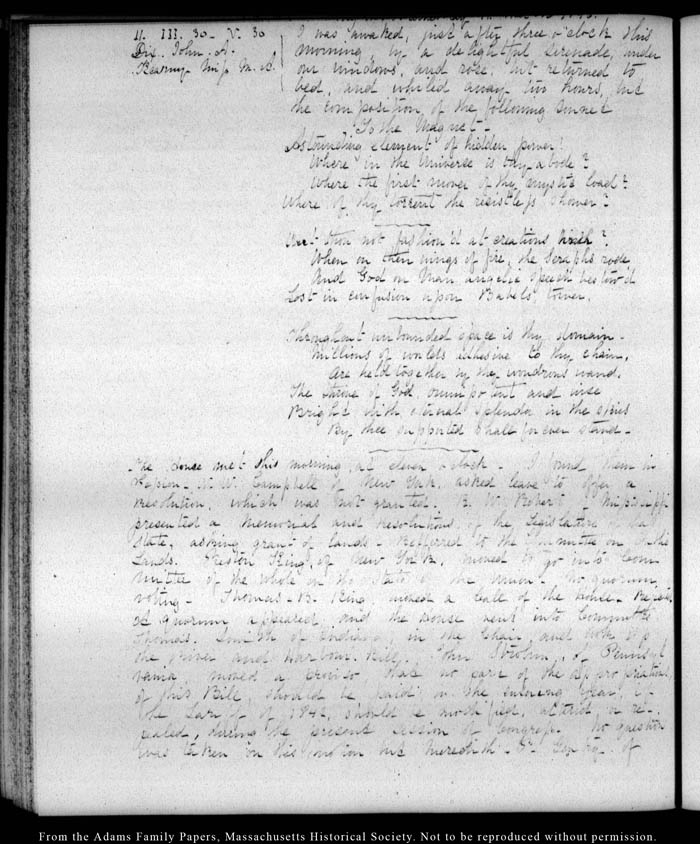 11. III. 30. V. 30
Dix. John. A.
Kearny Miss M. S.
I was awaked, just after three o'clock this
morning by a delightful serenade, under
our windows, and rose, but returned to
bed, and whiled away two hours, in
the composition of the following sonnet
To the Magnet—
Astounding element of hidden power!
Where in the Universe is thy abode?
Where the first mover of thy mystic load?
Where of thy torrent the resistless shower?
Wert thou not fashion'd at creations hour?
When on their wings of fire, the Seraphs rode
And God on Man angelic speech bestow'd
Lost in confusion upon Babel's tower.
Throughout unbounded space is thy domain—
Millions of worlds adhesive to thy chain,
Are held together by thy wondrous wand.
The throne of God, omnipotent and wise
Bright with eternal splendor in the skies
By thee supported shall forever stand—
The House met this morning at eleven o'clock— I found them in
Session— W. W. Campbell of New York, asked leave to offer a
resolution, which was not granted. R. W. Roberts Mississippi
presented a Memorial and resolutions of the Legislature of
State, asking grant of lands— Referred to the Committee on
Lands. Preston King, of New York, moved to go into Com
mittee of the whole on the state of the Union— No quorum
voting— Thomas B. King moved a Call of the House—
A quorum appeared, and the House went into Committee
Thomas Smith of Indiana, in the Chair, and took up
the River and Harbour Bill. John Strohm, of Pennsyl
vania, moved a proviso that no part of the appropriations
of this Bill, should be paid in the ensuing year, if
the Tariff of 1842, should be modified, altered or re-
pealed, during the present session of Congress. No question
was taken on this motion Meredith P. Gentry of
From the Adams Family Papers, Massachusetts Historical Society. Not to be reproduced without permission.